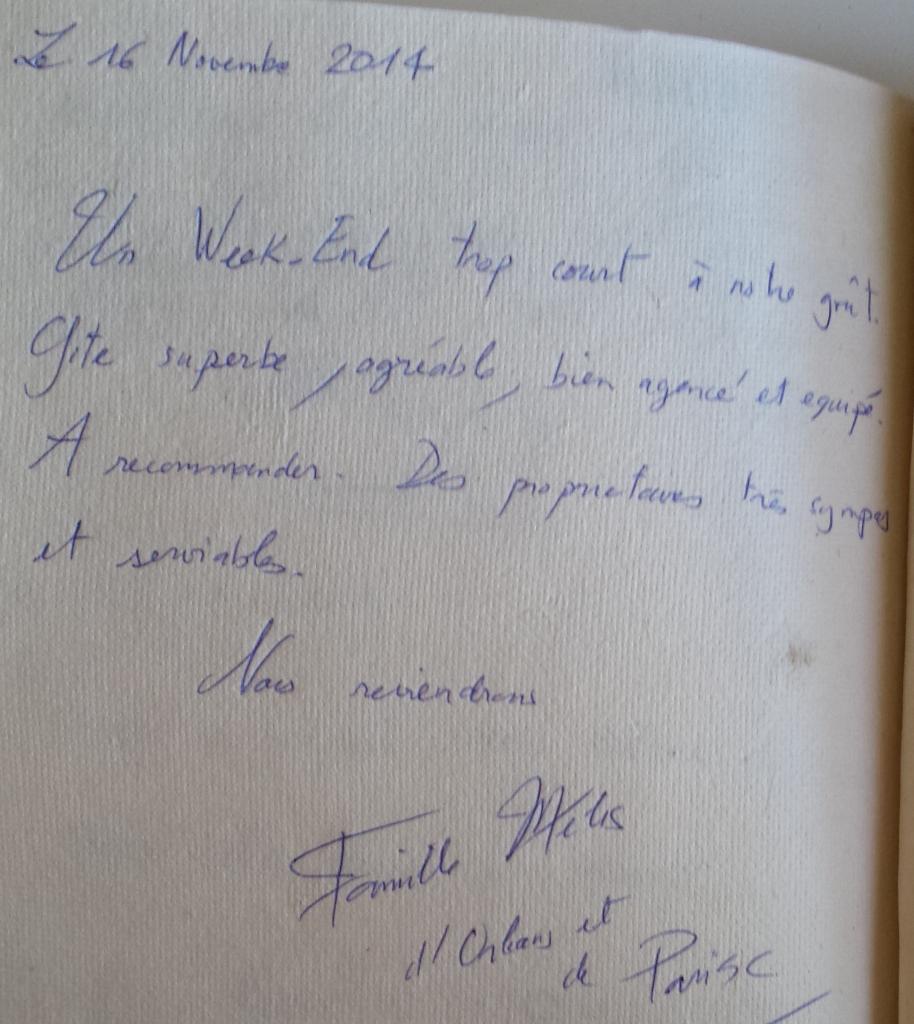 Le 16 Novembre 2014
Un Week-End trop court à notre goût.
Gîte superbe, agréable, bien agencé et equipé.
A recommander. Des proprietaires très sympas
et serviables.
Nous reviendrons
Famille
d'Orléans et
de